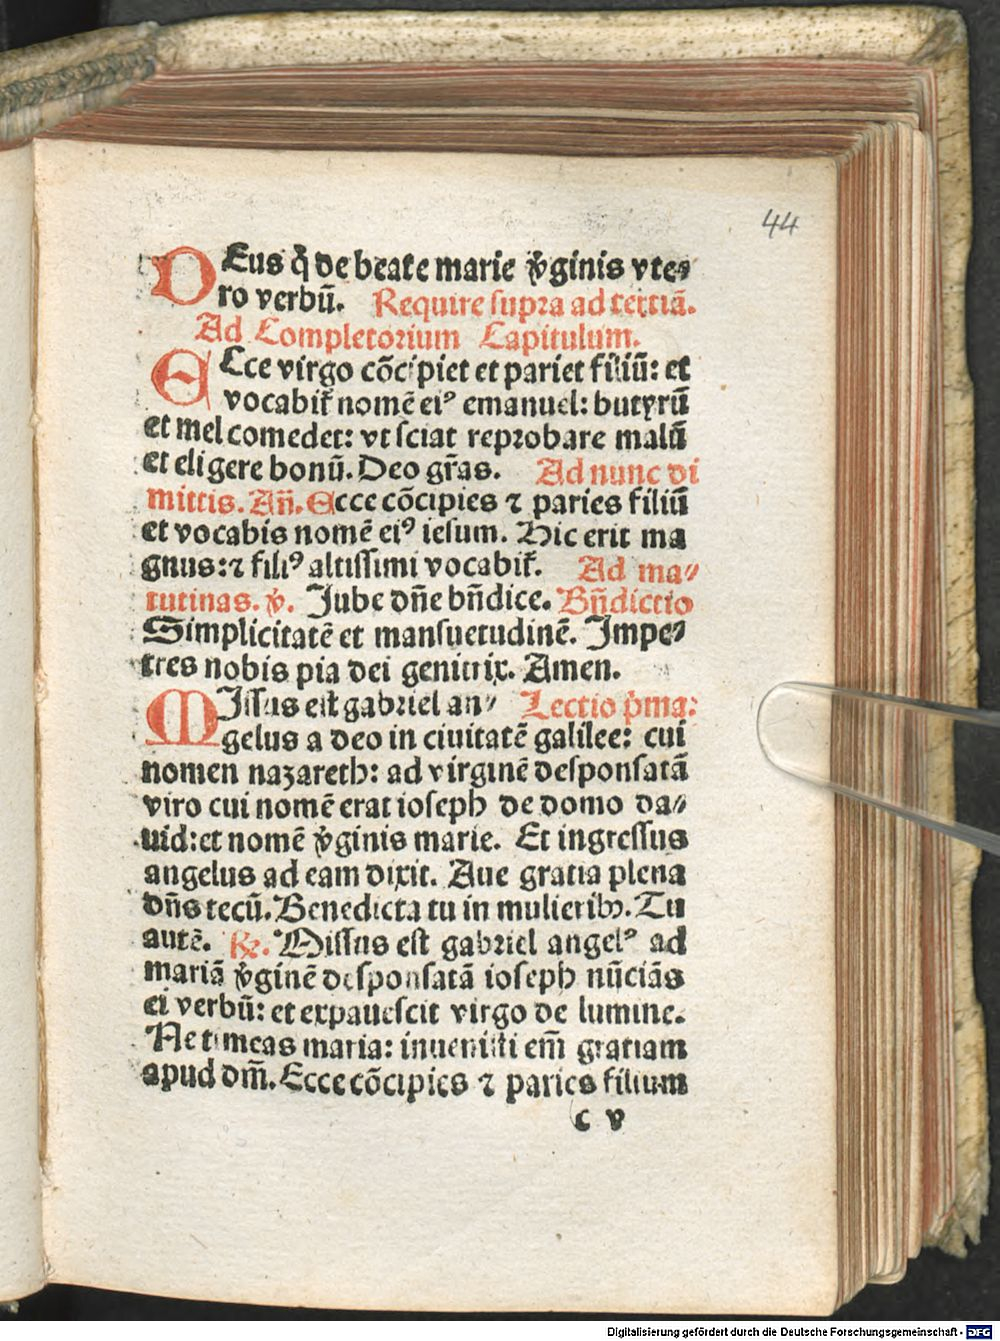 44
DEus q̄ de beate marie v̄ginis vte⸗
ro verbū. Require supra ad tertiā.
Ad Completorium Capitulum.
ECce virgo cōcipiet et pariet filiū: et
vocabit᷑ nomē eiꝰ emanuel: butyrū
et mel comedet: vt sciat reprobare malū
et eligere bonū. Deo gr̄as. Ad nunc di
mittis. An̄. Ecce cōcipies ⁊ paries filiū
et vocabis nomē eiꝰ iesum. Hic erit ma
gnus: ⁊ filiꝰ altissimi vocabit᷑. Ad ma⸗
tutinas. v̄. Jube dn̄e bn̄dice. Bn̄dictio
Simplicitatē et mansuetudinē. Impe⸗
tres nobis pia dei genitrix. Amen.
MIssus est gabriel an⸗ Lectio p̄ma:
gelus a deo in ciuitatē galilee: cui
nomen nazareth: ad virginē desponsatā
viro cui nomē erat ioseph de domo da⸗
uid: et nomē v̄ginis marie. Et ingressus
angelus ad eam dixit. Aue gratia plena
dn̄s tecū. Benedicta tu in mulieribꝰ. Tu
autē. ℞. Missus est gabriel angelꝰ ad
mariā v̄ginē desponsatā ioseph nūciās
ei verbū: et expauescit virgo de lumine.
Ne timeas maria: inuenisti em̄ gratiam
apud dm̄. Ecce cōcipies ⁊ paries filium
c v
Digitalisierung gefördert durch die Deutsche Forschungsgemeinschaft - DFG